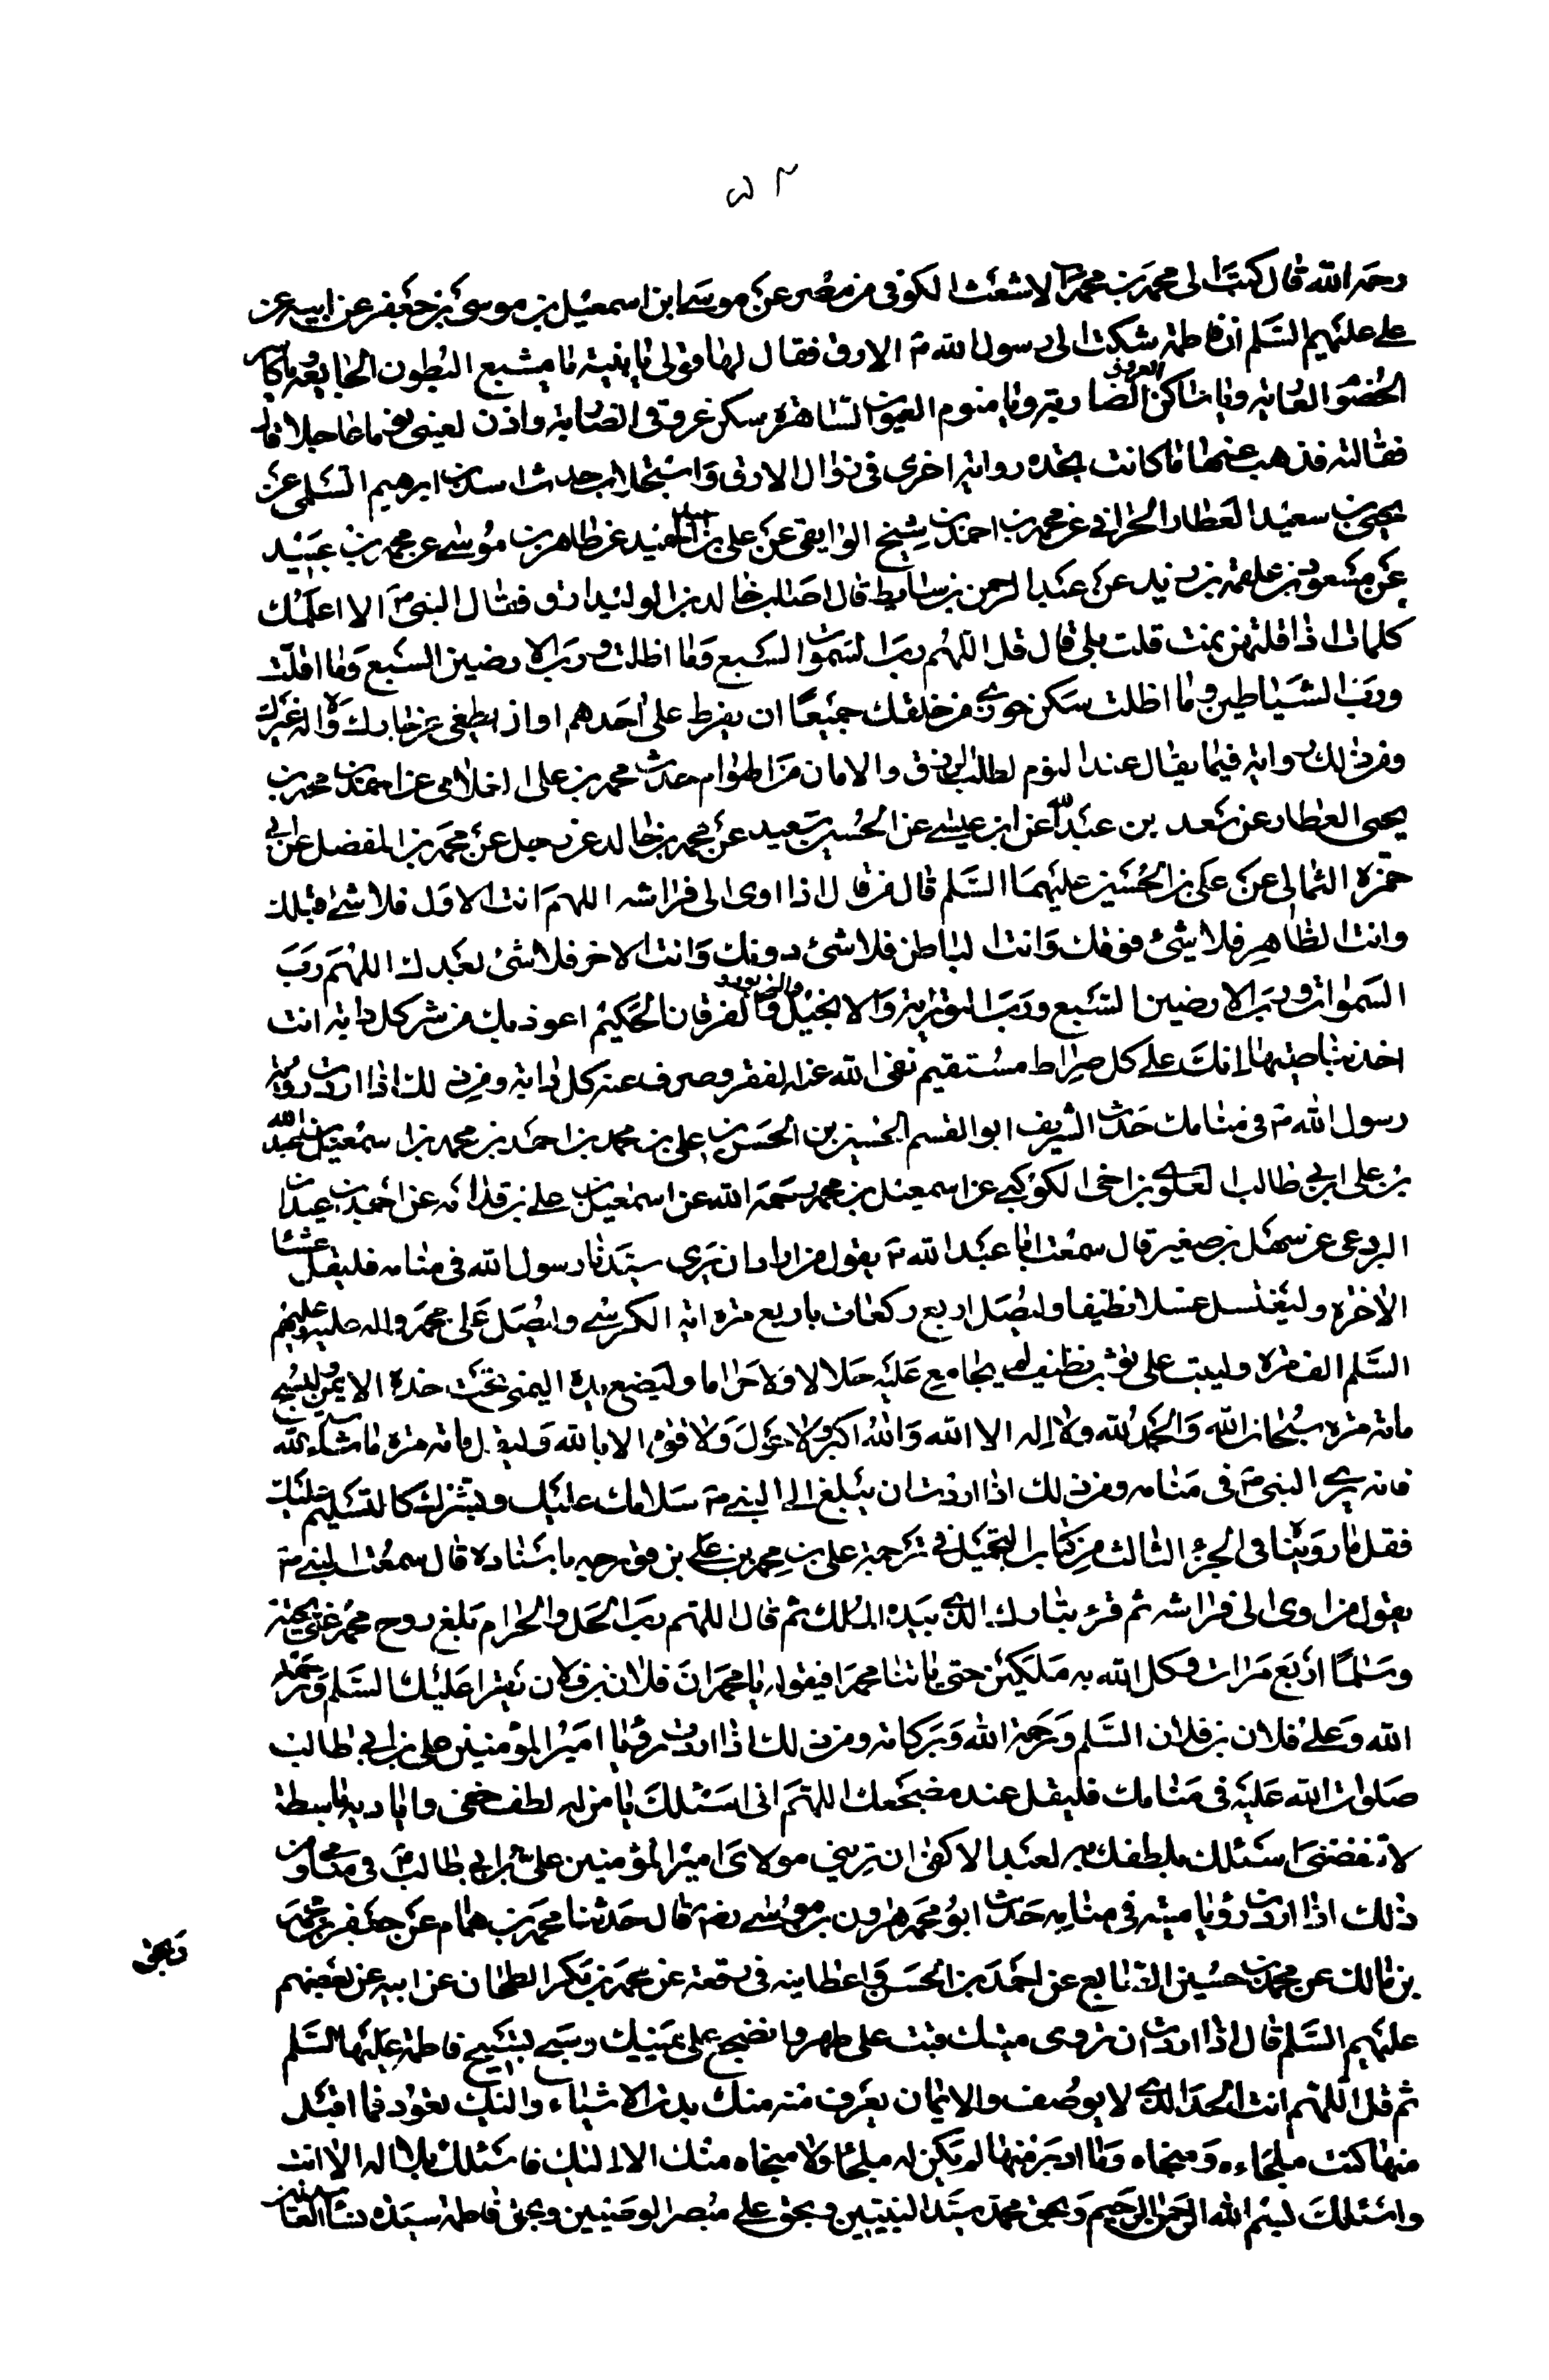 رحمه الله قال كتب الى محمد بن محمد بن الاشعث الكوفى من مصر عن موسى ابن اسمعيل بن موسى بن جعفر عن ابيه عن
على عليهم السلم ان فاطمة شكت الى رسول الله ص الارق فقال لها قولى يا بنية يا مشبع البطون الجايعة يا كاسى
الجسوم العارية ويا ساكن العروق الضاربة ويا منوم العيون الساهرة سكن عروقى الضاربة واذن لعينى نوما عاجلا قال
فقالته فذهب عنها ما كانت تجده رواية اخرى فى زوال الارق واستجلاب حدث اسد بن ابرهيم السلمى عن
يحيى بن سعيد العطار الحرانى عن محمد بن احمد بن شيخ الوايقى عن على بن الجنيد عن طاهر بن موسى عن محمد بن عبيد
عن مسعود بن علقمة بن زيد عن عبد الرحمن بن سابط قال اصاب خالد بن الوليد ارق فقال النبى ص الا اعلمك
كلمات اذا قلتهن نمت قلت بلى قال قل اللهم رب السموات السبع وما اظلت ورب الارضين السبع وما اقلت
ورب الشياطين وما اظلت سكن حرزى من خلقك جميعا ان يفرط على احدهم او ان يطغى عز جارك ولا اله غيرك
ومن ذلك رواية فيما يقال عند النوم لطلب الرزق والامان من الهوام حدث محمد بن على عن احمد بن محمد بن
يحيى العطار عن سعد بن عبد الله عن ابن عيسى عن الحسين بن سعيد عن محمد بن خالد عن رجل عن محمد بن المفضل عن ابى
حمزة الثمالى عن على بن الحسين عليهما السلم قال من قال اذا اوى الى فراشه اللهم انت الاول فلا شىء قبلك
وانت الظاهر فلا شىء فوقك وانت الباطن فلا شىء دونك وانت الاخر فلا شىء بعدك اللهم رب
السموات ورب الارضين السبع ورب التورية والانجيل والزبور والفرقان الحكيم اعوذ بك من شر كل دابة انت
اخذ بناصيتها انك على كل صراط مستقيم نفى الله عنه الفقر وصرف عنه كل دابة ومن ذلك اذا اردت رؤيا
رسول الله ص فى منامك حدث الشريف ابو القسم الحسين بن الحسن بن على بن محمد بن احمد بن محمد بن اسمعيل بن عبد الله
بن على ابى طالب العلوى بن اخى الكوكبى عن اسمعيل بن محمد رحمه الله عن اسمعيل بن على بن قدامه عن احمد بن عبدان
البردعى عن سهل بن صغير قال سمعت ابا عبد الله ع يقول من اراد ان يرى سيدنا رسول الله فى منامه فليصل عشاء
الاخرة وليغتسل غسلا نظيفا وليصل اربع ركعات باربع مرة اية الكرسى وليصل على محمد واله عليه وعليهم
السلم الف مرة وليبت على ثوب نظيف لم يجامع عليه حلالا ولا حراما وليضع يده اليمنى تحت خده الايمن وليسبح
مائة مرة سبحان الله والحمد لله ولا اله الا الله والله اكبر ولا حول ولا قوة الا بالله وليقل مائة مرة ما شاء الله
فانه يرى النبى ص فى منامه ومن ذلك اذا اردت ان تبلغ الى النبى ص سلامك عليك كالتسليم عليك
فقل ما رويناه فى الجزء الثالث من كتاب التجميل فى ترجمة على بن محمد بن على بن باسناده قال سمعت النبى ص
يقول من اوى الى فراشه ثم قرء تبارك الذى بيده الملك ثم قال اللهم رب الحل والحرام بلغ روح محمد عنى تحية
وسلاما اربع مرات وكل الله به ملكين حتى ياتيا محمدا فيقولا يا محمد ان فلان بن فلان يقرا عليك السلم ورحمة
الله وعلى فلان بن فلان السلم ورحمة الله وبركاته ومن ذلك اذا اردت رؤيا امير المؤمنين على بن ابى طالب
صلوات الله عليه فى منامك فليقل عند مضجعك اللهم انى اسئلك يا من له لطف خفى وايادى باسطة
لا تنقضى اسئلك بلطفك لعبد الا كفى ان ترينى مولاى امير المؤمنين على بن ابى طالب ع فى منامى ومن
ذلك اذا اردت رؤيا ميته فى منامه حدث ابو محمد هرون بن موسى رض قال حدثنا محمد بن همام عن جعفر بن محمد
بن مالك عن محمد بن حسين الصايغ عن احمد بن الحسن واعطانيه فى رقعة عن محمد بن بكر الطحان عن ابيه عن بعضهم
عليهم السلم قال اذا اردت ان ترى ميتك فبت على طهر وانضجع على يمينك وسبح تسبيح فاطمة عليها السلم
ثم قل اللهم انت الحى الذى لا يوصف والايمان يعرف منه منك بدت الاشياء واليك تعود فما اقبل
منها كنت ملجاءه ومنجاه وما ادبر منها لم يكن له ملجا ولا منجاه منك الا اليك فاسئلك بلا اله الا انت
واسئلك بسم الله الرحمن الرحيم وبحق محمد سيد النبيين وبحق على الوصيين وبحق فاطمة سيدة نساء العالمين
وبحق